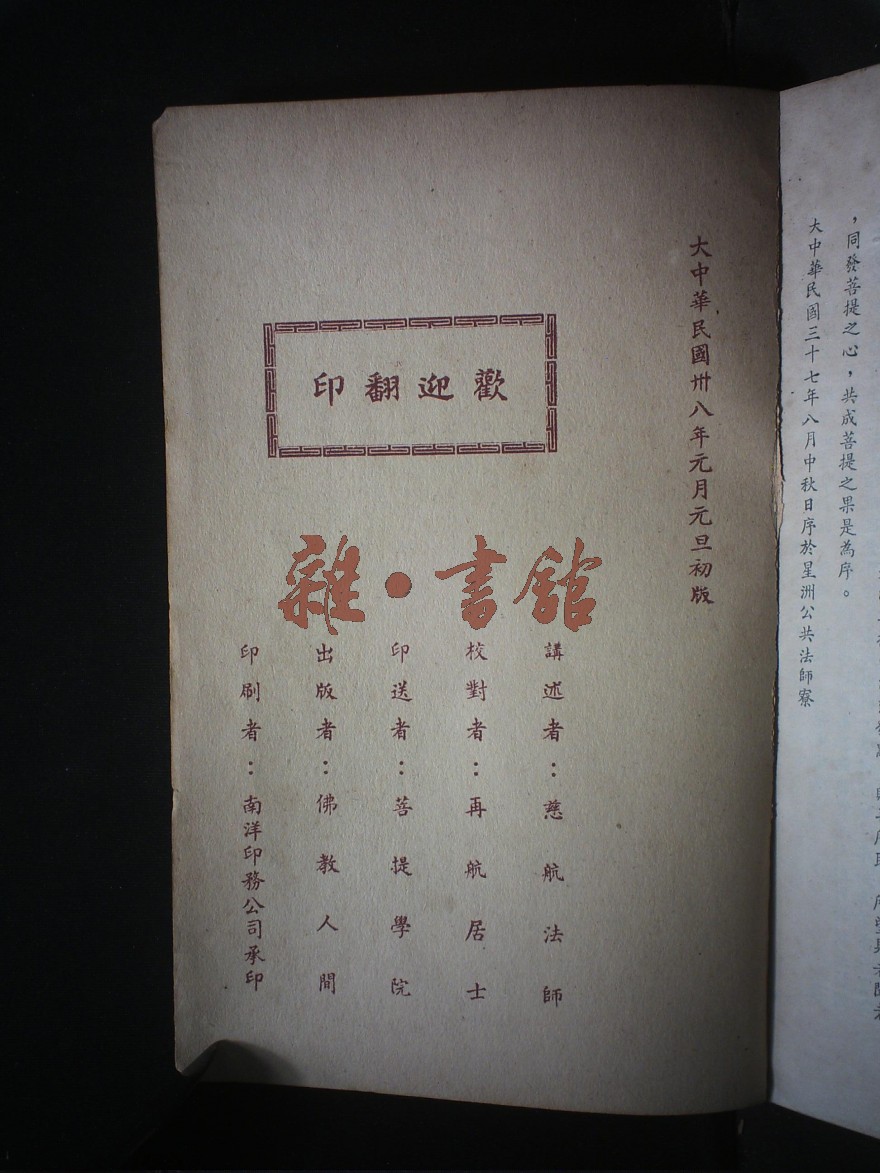 ，同發菩提之心，共成菩提之果是為序。
大中華民國三十七年八月中秋日序於星洲公共法師寮
大中華民國卅八年元月元旦初版
歡迎翻印
雜·書館
講述者：慈航法師
校對者：再航居士
印送者：菩提學院
出版者：佛教人間
印刷者：南洋印務公司承印